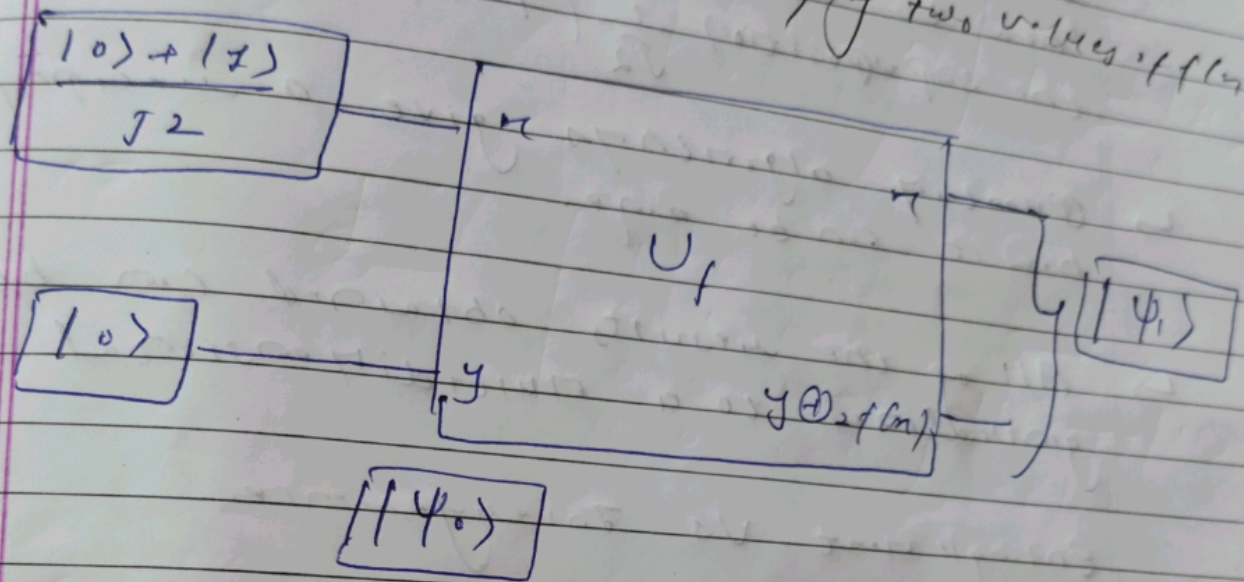 two values of f(x
|0> + |1>
√2
x
x
U_f
|ψ₁>
|0>
y
y⊕₂f(x)
|ψ₀>